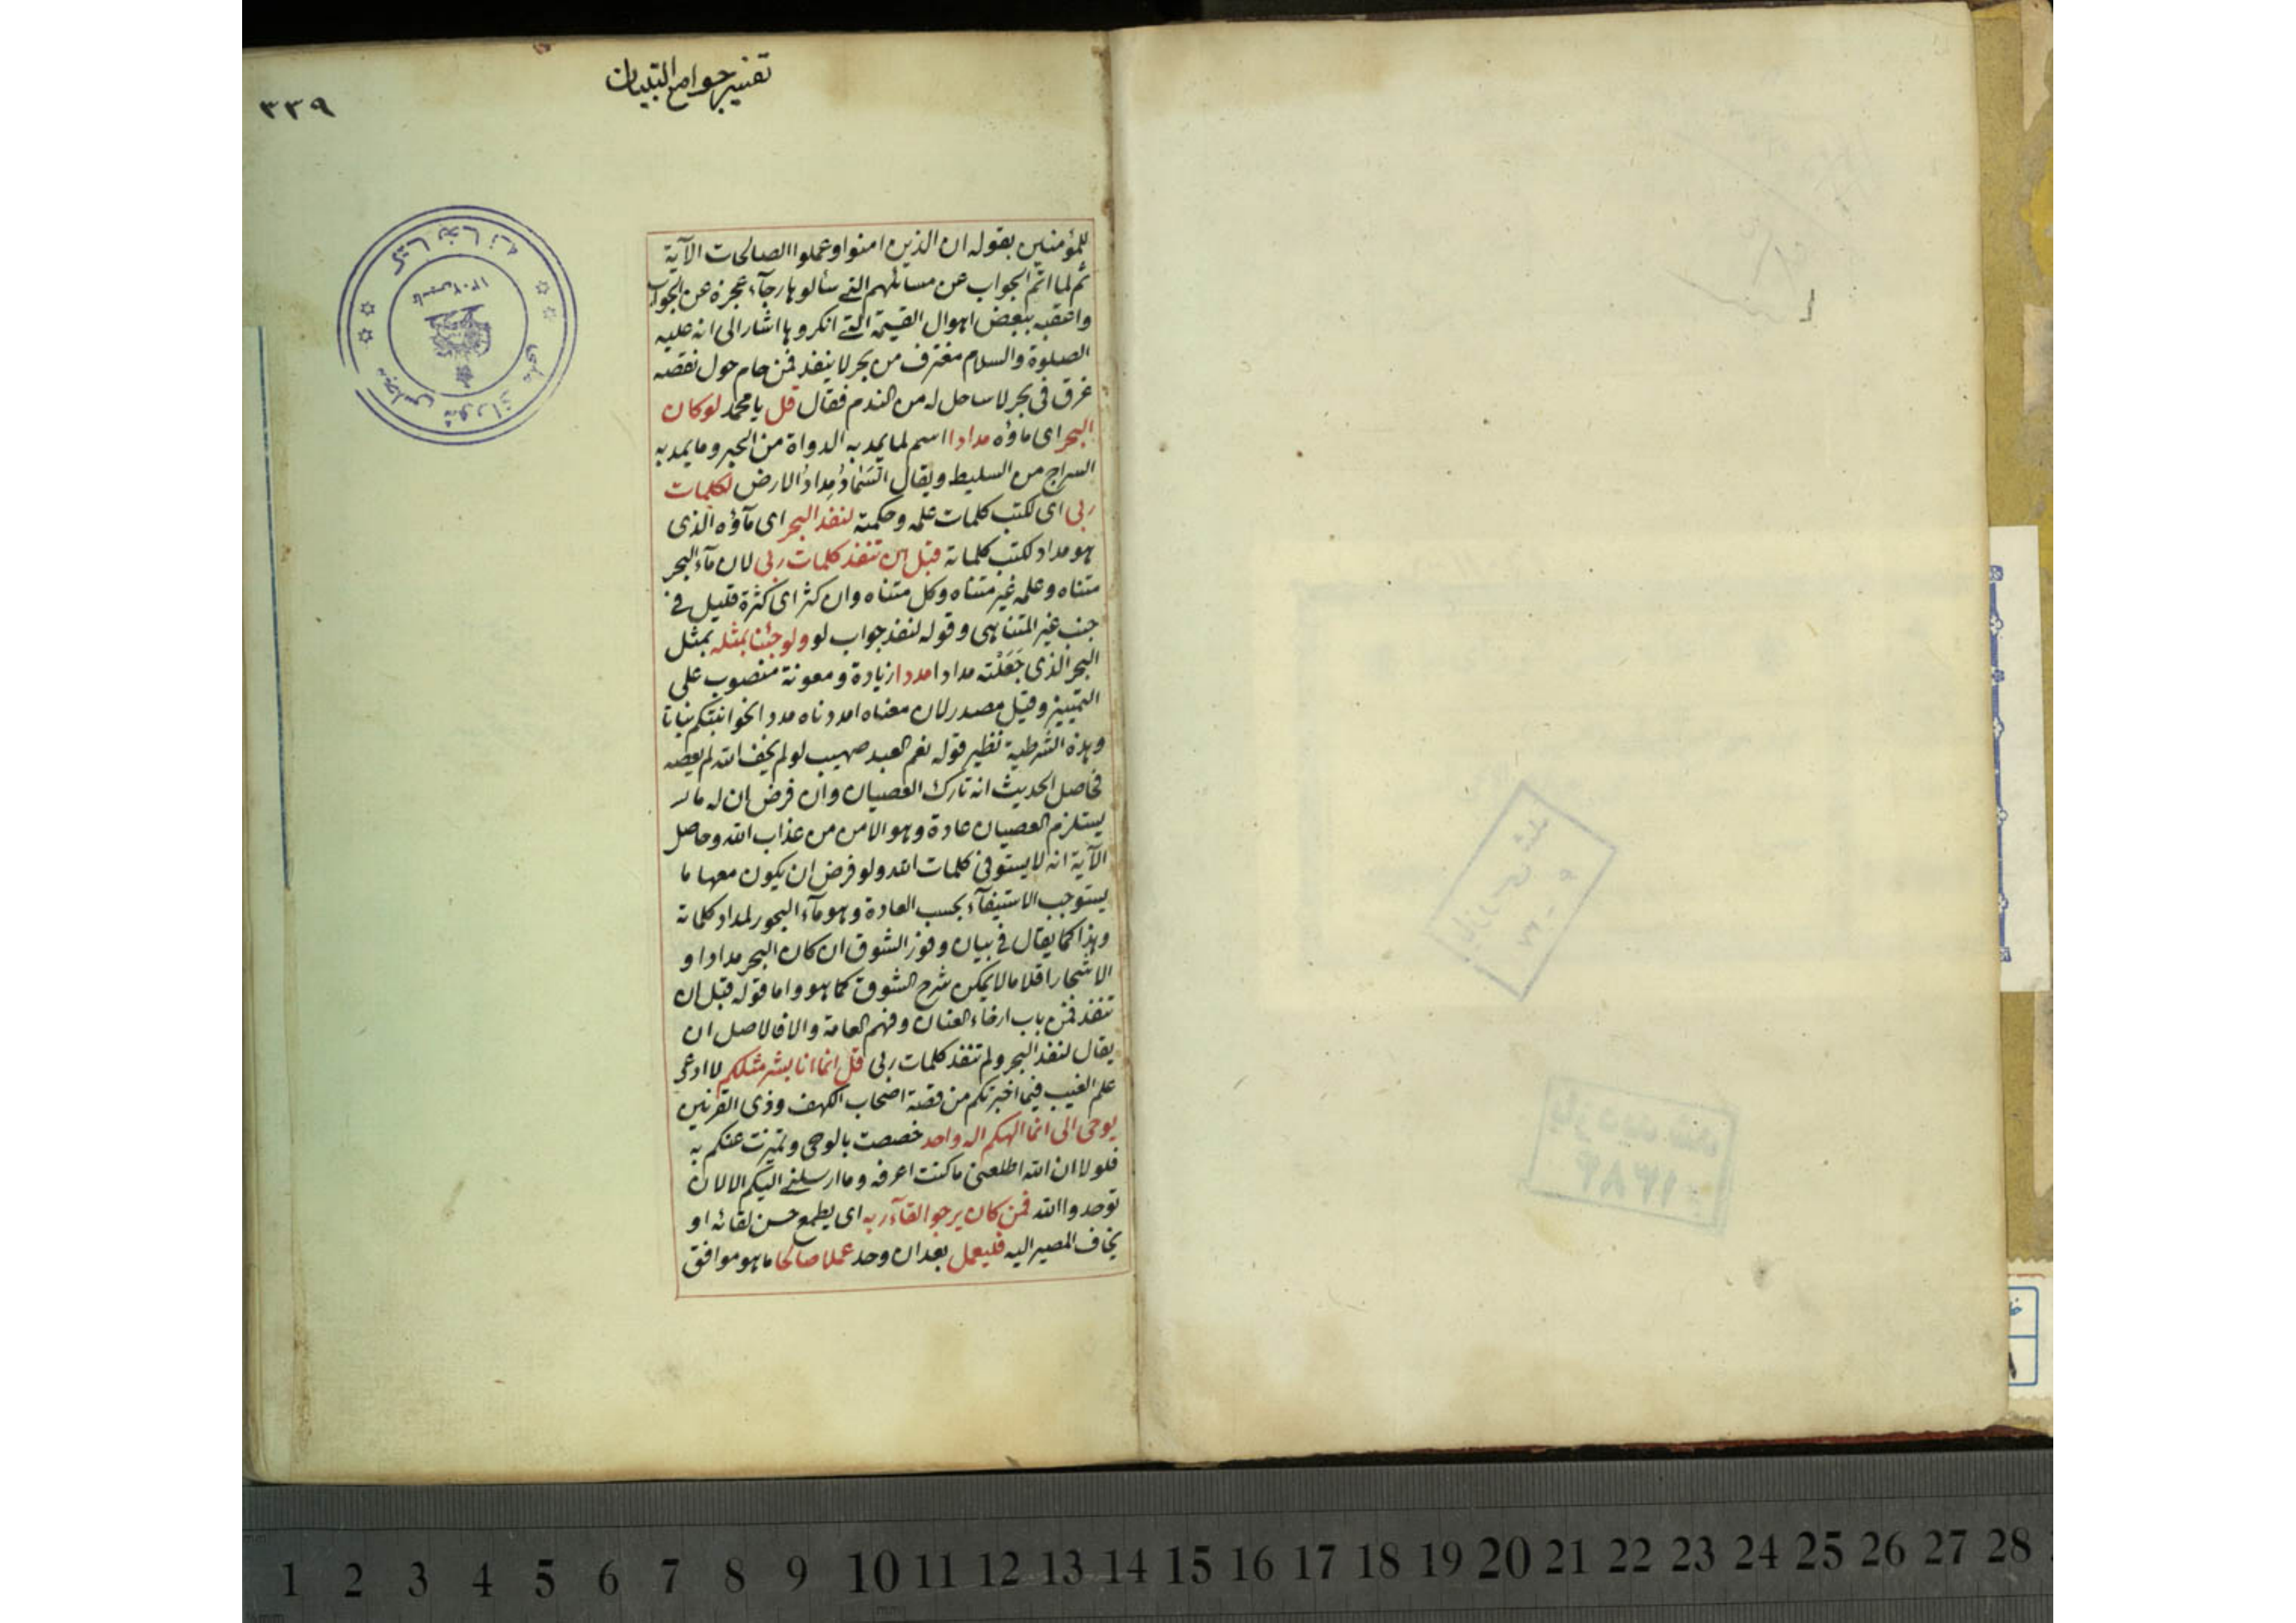 تفسير جوامع التبيان
٣٣٩
للمؤمنين بقوله ان الذين امنوا وعملوا الصالحات الآية
ثم لما اتم الجواب عن مسائلهم التے سألوها رجآء عجزه عن الجواب
واعقبه ببعض اهوال القيمة التے انكروها اشار الى انه عليه
الصلوة والسلام مغترف من بحر لا ينفد فمن حام حول نقصه
غرق فى بحر لا ساحل له من الندم فقال قل يا محمد لو كان
البحر اى ماؤه مدادا اسم لما يمد به الدواة من الحبر وما يمد به
السراج من السليط ويقال السَّمَادُ مِدادُ الارض لكلمات
ربى اى لكتب كلمات علمه وحكمته لنفد البحر اى مآؤه الذى
هو مداد لكتب كلماته قبل ان تنفد كلمات ربى لان مآء البحر
متناه وعلمه غير متناه وكل متناه وان كثر اى كثرة قليل فے
جنب غير المتناهى وقوله لنفد جواب لو ولو جئنا بمثله بمثل
البحر الذى جَعَلْته مدادا مددا زيادة ومعونة منصوب على
التمييز وقيل مصدر لان معناه امددناه مددا نحو انبتكم نباتا
وهذه الشرطية نظير قوله نعم العبد صهيب لو لم يخف الله لم يعصه
فحاصل الحديث انه تارك العصيان وان فرض ان له ما لـ
يستلزم العصيان عادة وهو الامن من عذاب الله وحاصل
الآية انه لا يستوفى كلمات الله ولو فرض ان يكون معها ما
يستوجب الاستيفآء بحسب العادة وهو مآء البحور لمداد كلماته
وهذا كما يقال فے بيان وفور الشوق ان كان البحر مدادا و
الاشجار اقلاما لا يمكن شرح الشوق كما هو واما قوله قبل ان
تنفد فمن باب ارخاء العنان وفهم العامة والا فالاصل ان
يقال لنفد البحر ولم تنفد كلمات ربى قل انما انا بشر مثلكم لا ادعى
علم الغيب فيما اخبرتكم من قصة اصحاب الكهف وذى القرنين
يوحى الى انما الهكم اله واحد خصصت بالوحى وتميزت عنكم به
فلولا ان الله اطلعنى ما كنت اعرفه وما ارسلنے اليكم الا لان
توحدوا الله فمن كان يرجوا لقآء ربه اى يطمع حسن لقائه او
يخاف المصير اليه فليعمل بعد ان وحد عملا صالحا ما هو موافق
كتابخانه
مجلس شوراى ملى
بازديد شد
١٣٨٤
1 2 3 4 5 6 7 8 9 10 11 12 13 14 15 16 17 18 19 20 21 22 23 24 25 26 27 28